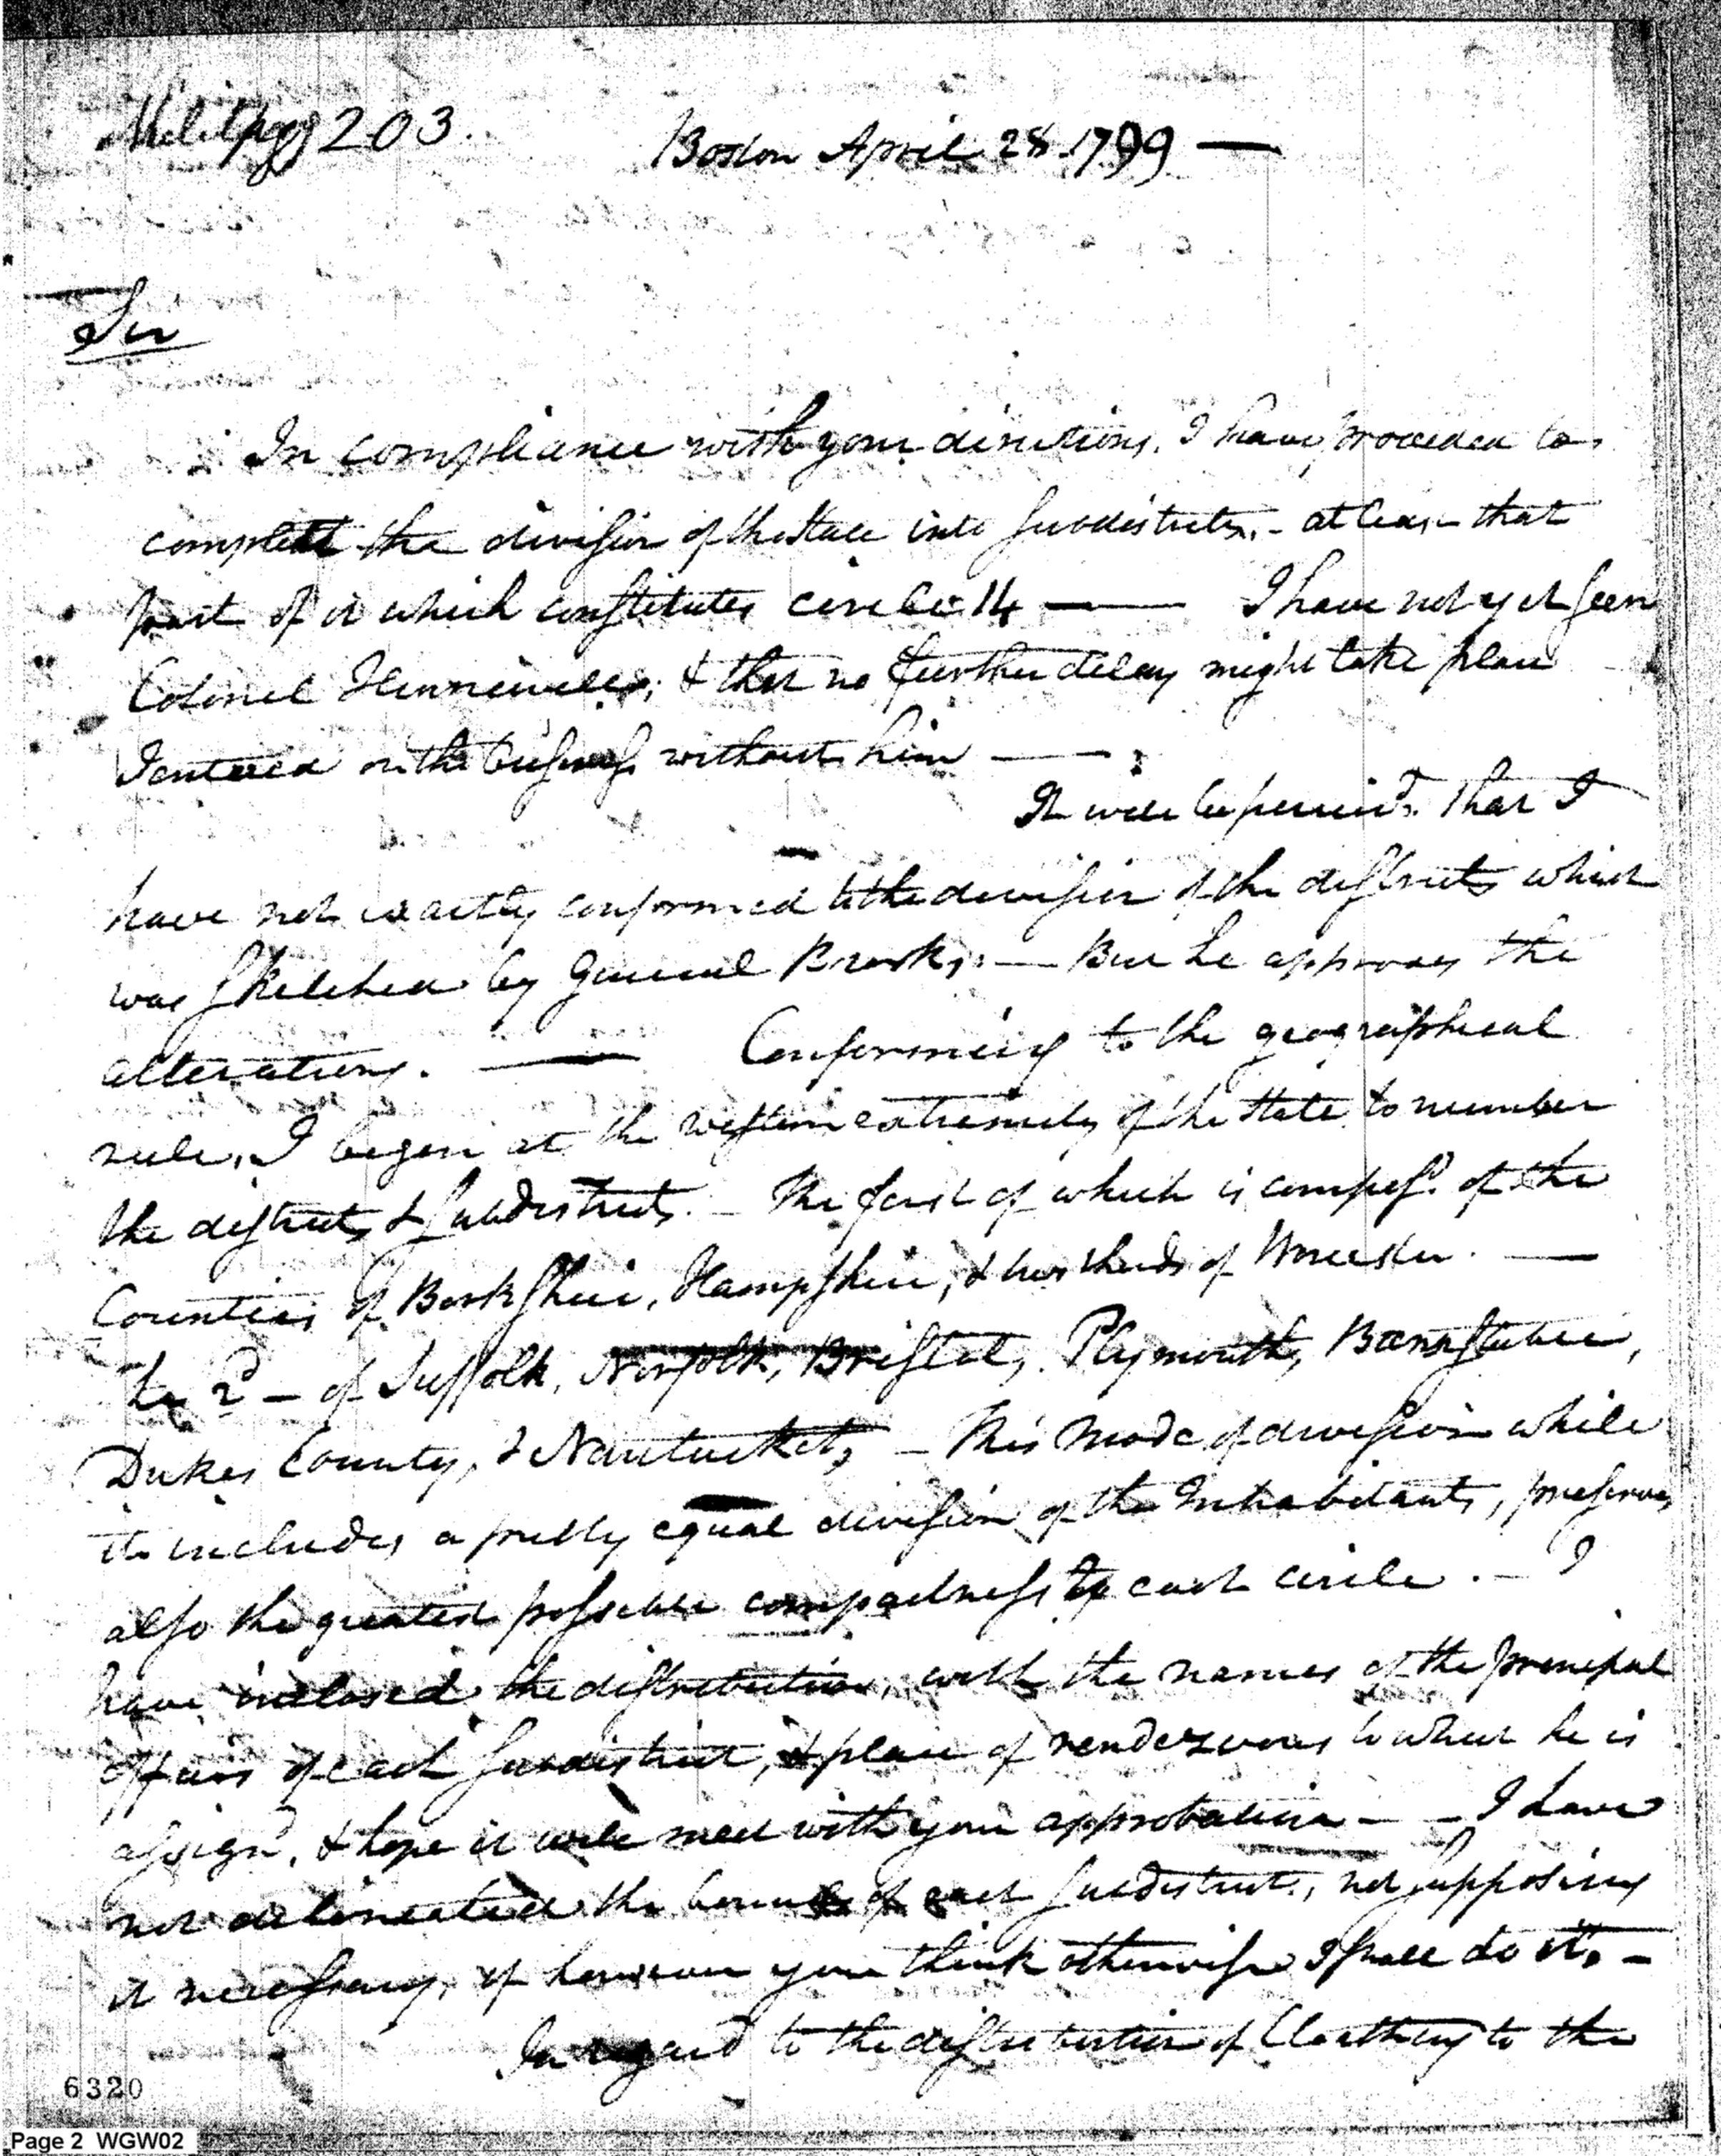 203.
Boston April 28. 1799 —
Sir
In compliance with your directions, I have proceeded to
complete the division of the State into subdistricts, - at least that
part of it which constitutes circle 14 — I have not yet seen
Colonel & that no further delay might take place
I entered on the business without him —
It will be perceiv'd that I
have not exactly conformed to the division of the districts which
was sketched by General Brooks; — But he approves the
alterations. — Conforming to the geographical
rule, I began at the western extremity of the State to number
the districts & subdistricts. — The first of which is compos'd of the
Counties of Berkshire, Hampshire, & two thirds of Worcester. —
The 2d — of Suffolk, Norfolk, Bristol, Plymouth, Barnstable,
Dukes County, & Nantucket, — This mode of division while
it includes a pretty equal division of the Inhabitants, preserves
also the greatest possible compactness to each circle. — I
have inclosed the distribution, with the names of the principal
officers of each subdistrict, & place of rendezvous to which he is
assign'd, & hope it will meet with your approbation — — I have
not delineated the bounds of each subdistrict, not supposing
it necessary, if however you think otherwise I shall do it. —
In regard to the distribution of Cloathing to the
6320
Page 2 WGW02